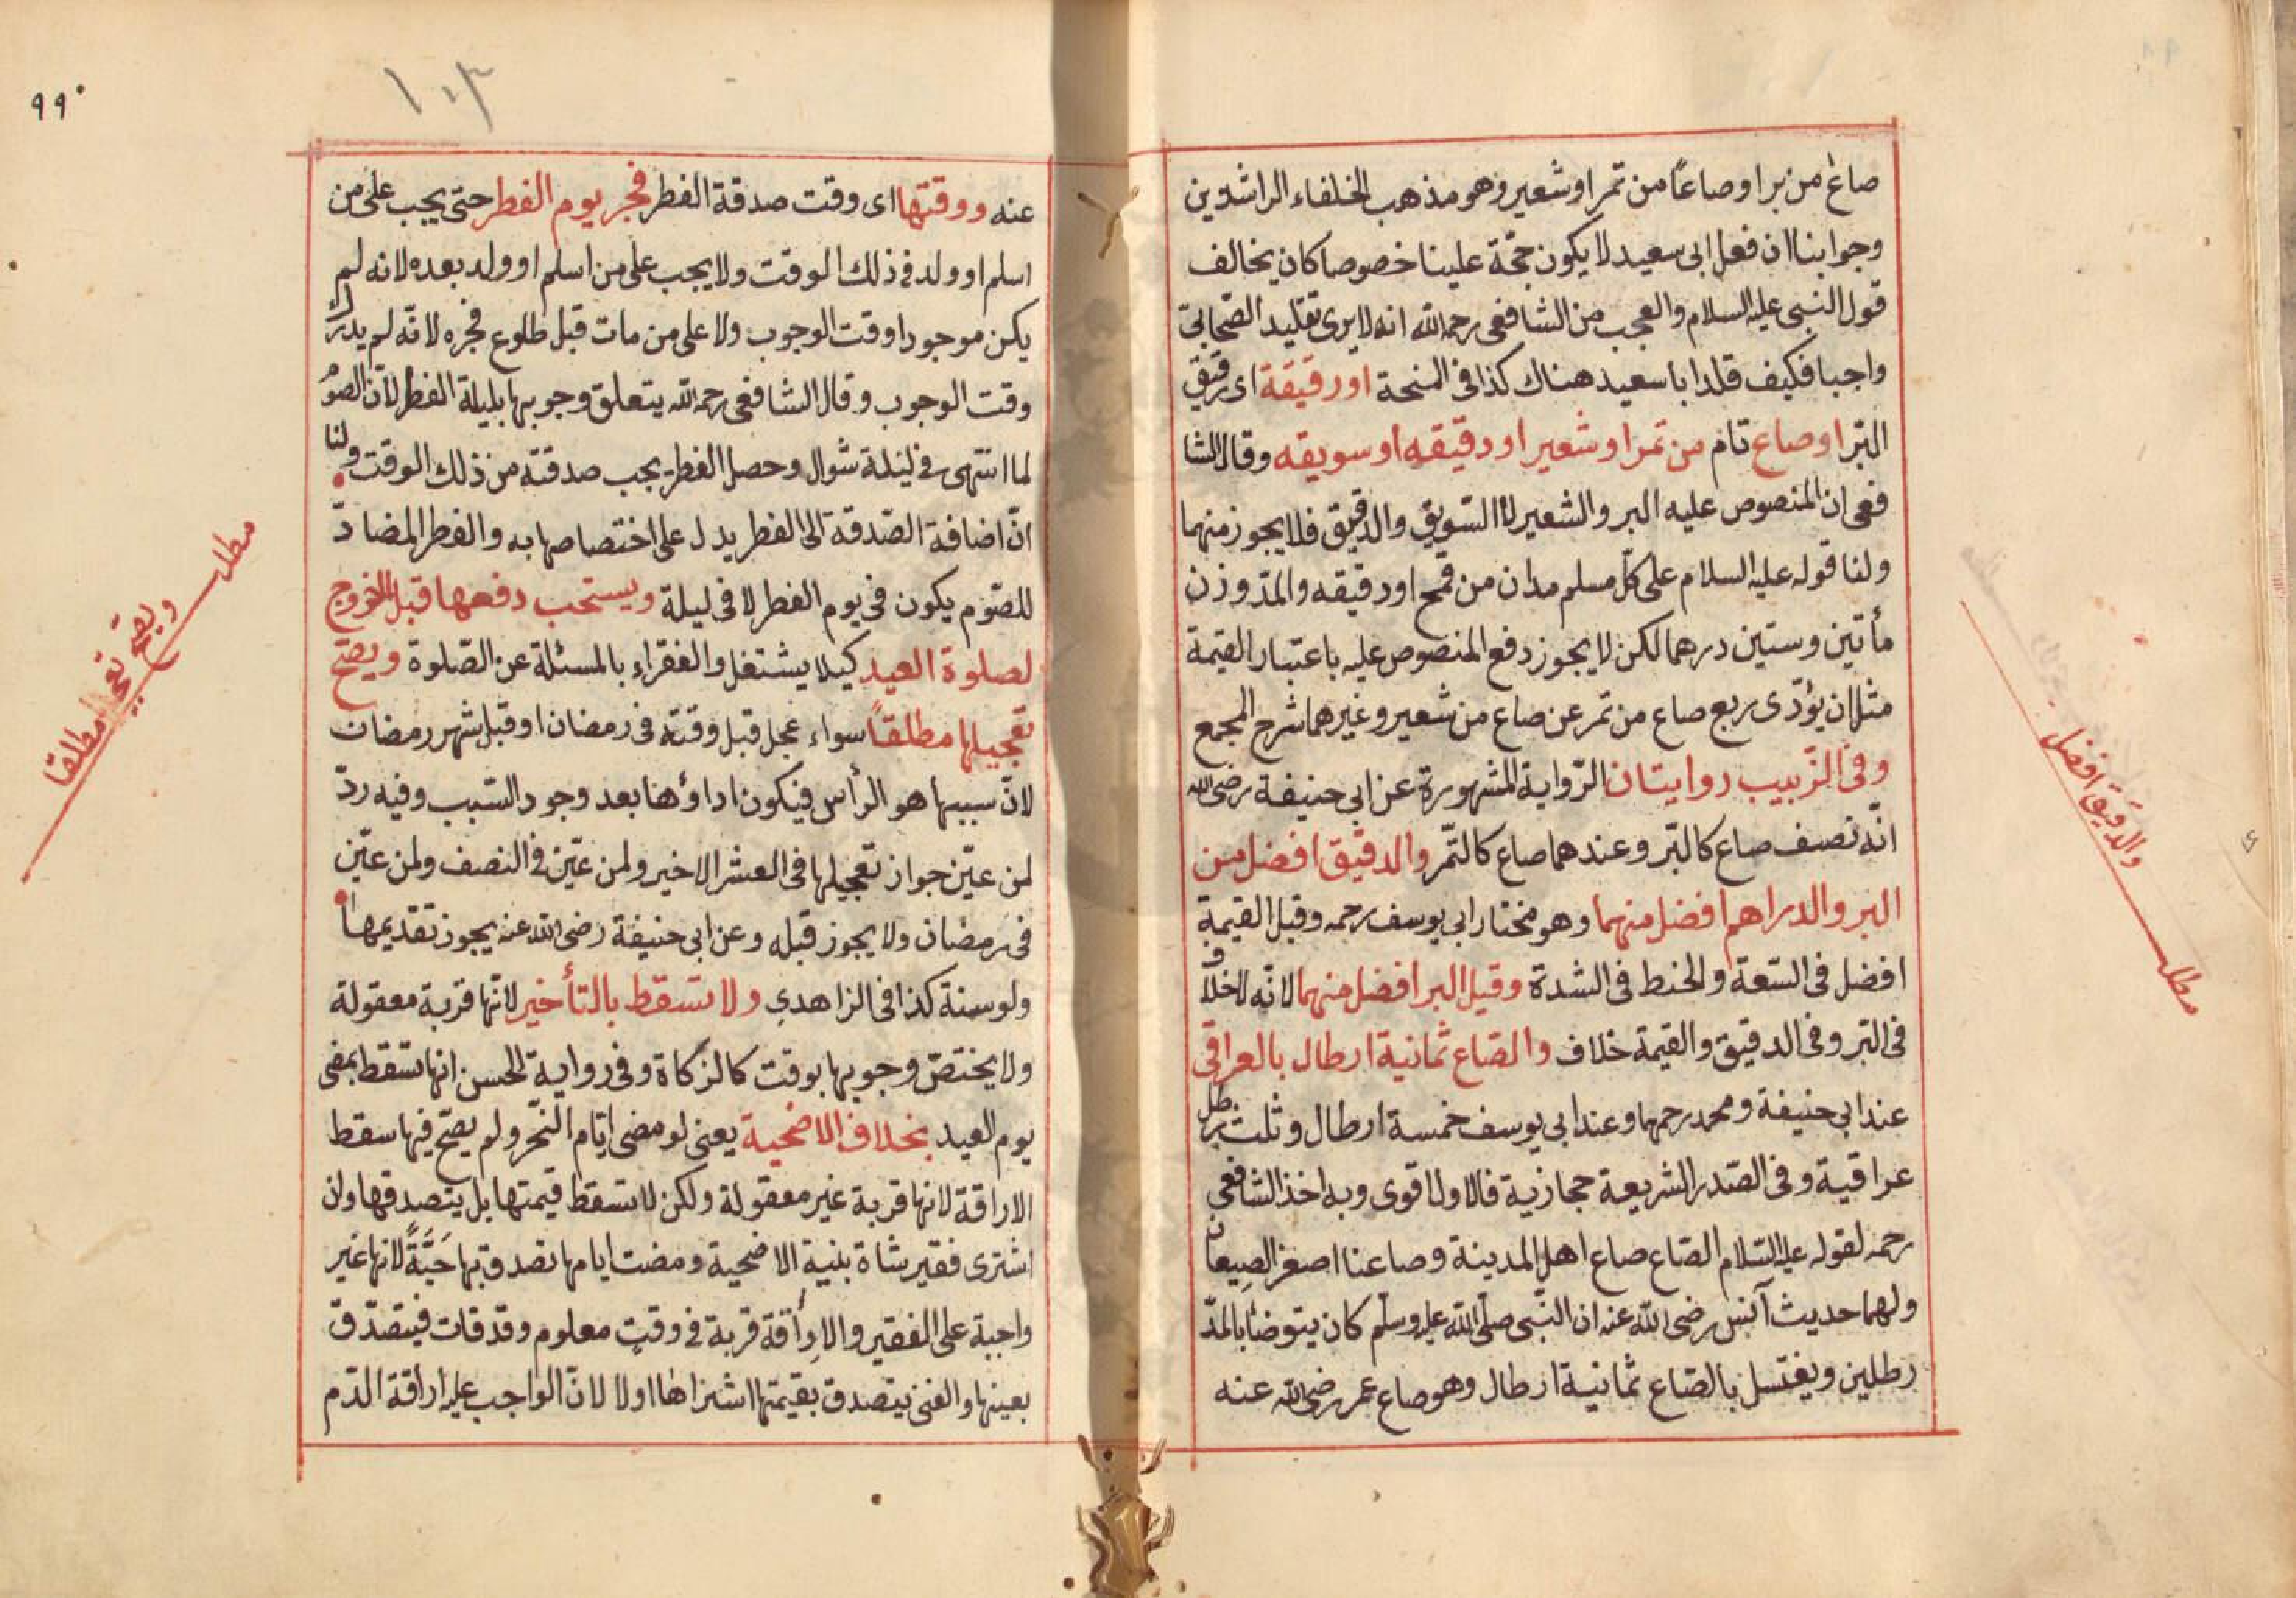 صاع من بر او صاعاً من تمر او شعير وهو مذهب الخلفاء الراشدين
وجوابنا ان فعل ابى سعيد لا يكون حجّة علينا خصوصا كان يخالف
قول النبى عليه السلام والعجب من الشافعى رحمه الله انه لا يرى تقليد الصّحابىّ
واجبا فكيف قلد ابا سعيد هناك كذا فى المنحة او رقيقة اى رقيق
البرّ او صاع تام من تمر او شعير او دقيقه او سويقه وقال الشا
فعى ان المنصوص عليه البر والشعير لا السّويق والدقيق فلا يجوز منهما
ولنا قوله عليه السلام على كلّ مسلم مدان من قمح او دقيقه والمدّ وزن
مأتين وستين درهما لكن لا يجوز دفع المنصوص عليه باعتبار القيمة
مثل ان يؤدّى ربع صاع من تمر عن صاع من شعير وغيرهما شرح المجمع
وفى الزّبيب روايتان الرّواية المشهورة عن ابى حنيفة رضى الله
انّه نصف صاع كالبّر وعندهما صاع كالتّمر والدقيق افضل من
البر والدراهم افضل منهما وهو مختار ابى يوسف رحمه وقيل القيمة
افضل فى السّعة والحنط فى الشدة وقيل البر افضل منهما لانّه لا خلاف
فى البّر وفى الدقيق والقيمة خلاف والصّاع ثمانية ارطال بالعراقى
عند ابى حنيفة ومحمد رحمهما وعند ابى يوسف خمسة ارطال وثلث رطل
عراقية وفى الصّدر الشريعة حجازية فالاول اقوى وبه اخذ الشافعى
رحمه لقوله عليه السّلام الصّاع صاع اهل المدينة وصاعنا اصغر الصيعان
ولهما حديث آنس رضى الله عنه ان النّبى صلّى الله عليه وسلّم كان يتوضأ بالمدّ
رطلين ويغتسل بالصّاع ثمانية ارطال وهو صاع عمر رضى الله عنه
والدقيق افضل
مطلب
٩٩
١٠٣
عنه ووقتها اى وقت صدقة الفطر فجر يوم الفطر حتى يجب على من
اسلم او ولد فى ذلك الوقت ولا يجب على من اسلم او ولد بعده لانه لم
يكن موجودا وقت الوجوب ولا على من مات قبل طلوع فجره لانّه لم يدرك
وقت الوجوب وقال الشافعى رحمه الله يتعلق وجوبها بليلة الفطر لانّ الصوم
لما انتهى فى ليلة شوال وحصل الفطر يجب صدقته من ذلك الوقت ولنا
انّ اضافة الصّدقة الى الفطر يدل على اختصاصها به والفطر المضادّ
للصّوم يكون فى يوم الفطر لا فى ليلة ويستحب دفعها قبل الخروج
لصلوة العيد كيلا يشتغل والفقراء بالمسئلة عن الصّلوة ويصحّ
تعجيلها مطلقاً سواء عجل قبل وقته فى رمضان او قبل شهر رمضان
لانّ سببها هو الرأس فيكون اداؤها بعد وجود السّبب وفيه ردّ
لمن عيّن جواز تعجيلها فى العشر الاخير ولمن عيّن فى النصف ولمن عيّن
فى رمضان ولا يجوز قبله وعن ابى حنيفة رضى الله عنه يجوز تقديمها
ولو سنة كذا فى الزاهدى ولا تسقط بالتأخير لانّها قربة معقولة
ولا يختصّ وجوبها بوقت كالزكاة وفى رواية الحسن انها تسقط بمضى
يوم العيد بخلاف الاضحية يعنى لو مضى ايّام النّحر ولم يضحّ فيها سقط
الاراقة لانها قربة غير معقولة ولكن لا تسقط قيمتها بل يتصدقها وان
اشترى فقير شاة بنية الاضحية ومضت ايامها تصدق بها حَيَّةً لانها غير
واجبة على الفقير والاِراقة قربة فى وقت معلوم وقد فات فيتصدّق
بعينها والغنى يتصدق بقيمتها اشتراها اولا لانّ الواجب عليه اراقة الدّم
مطلب
ويصح تعجيلها مطلقا